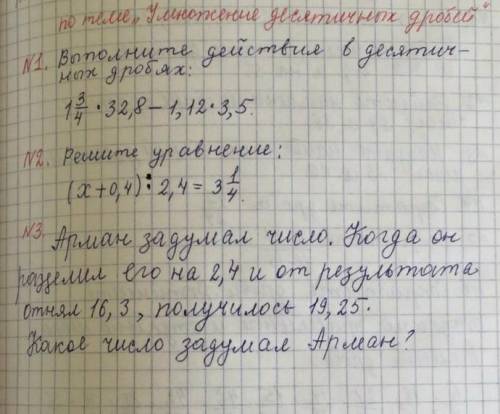 по теме „Умножение десятичных дробей“
N1. Выполните действия в десятич-
ных дробях:
1 3/4 · 32,8 – 1,12 · 3,5.
N2. Решите уравнение:
(x + 0,4) : 2,4 = 3 1/4.
N3. Арман задумал число. Когда он
разделил его на 2,4 и от результата
отнял 16,3, получилось 19,25.
Какое число задумал Арман?